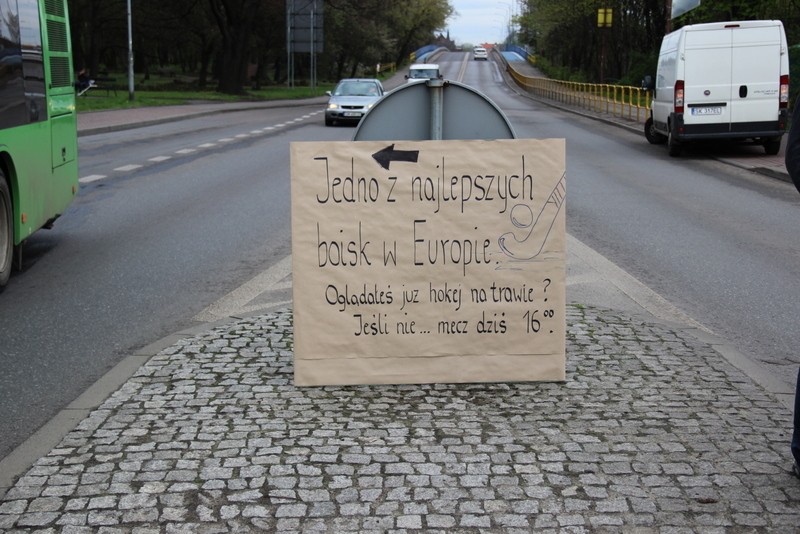 Jedno z najlepszych
boisk w Europie.
Oglądałeś już hokej na trawie?
Jeśli nie... mecz dziś 16⁰⁰.